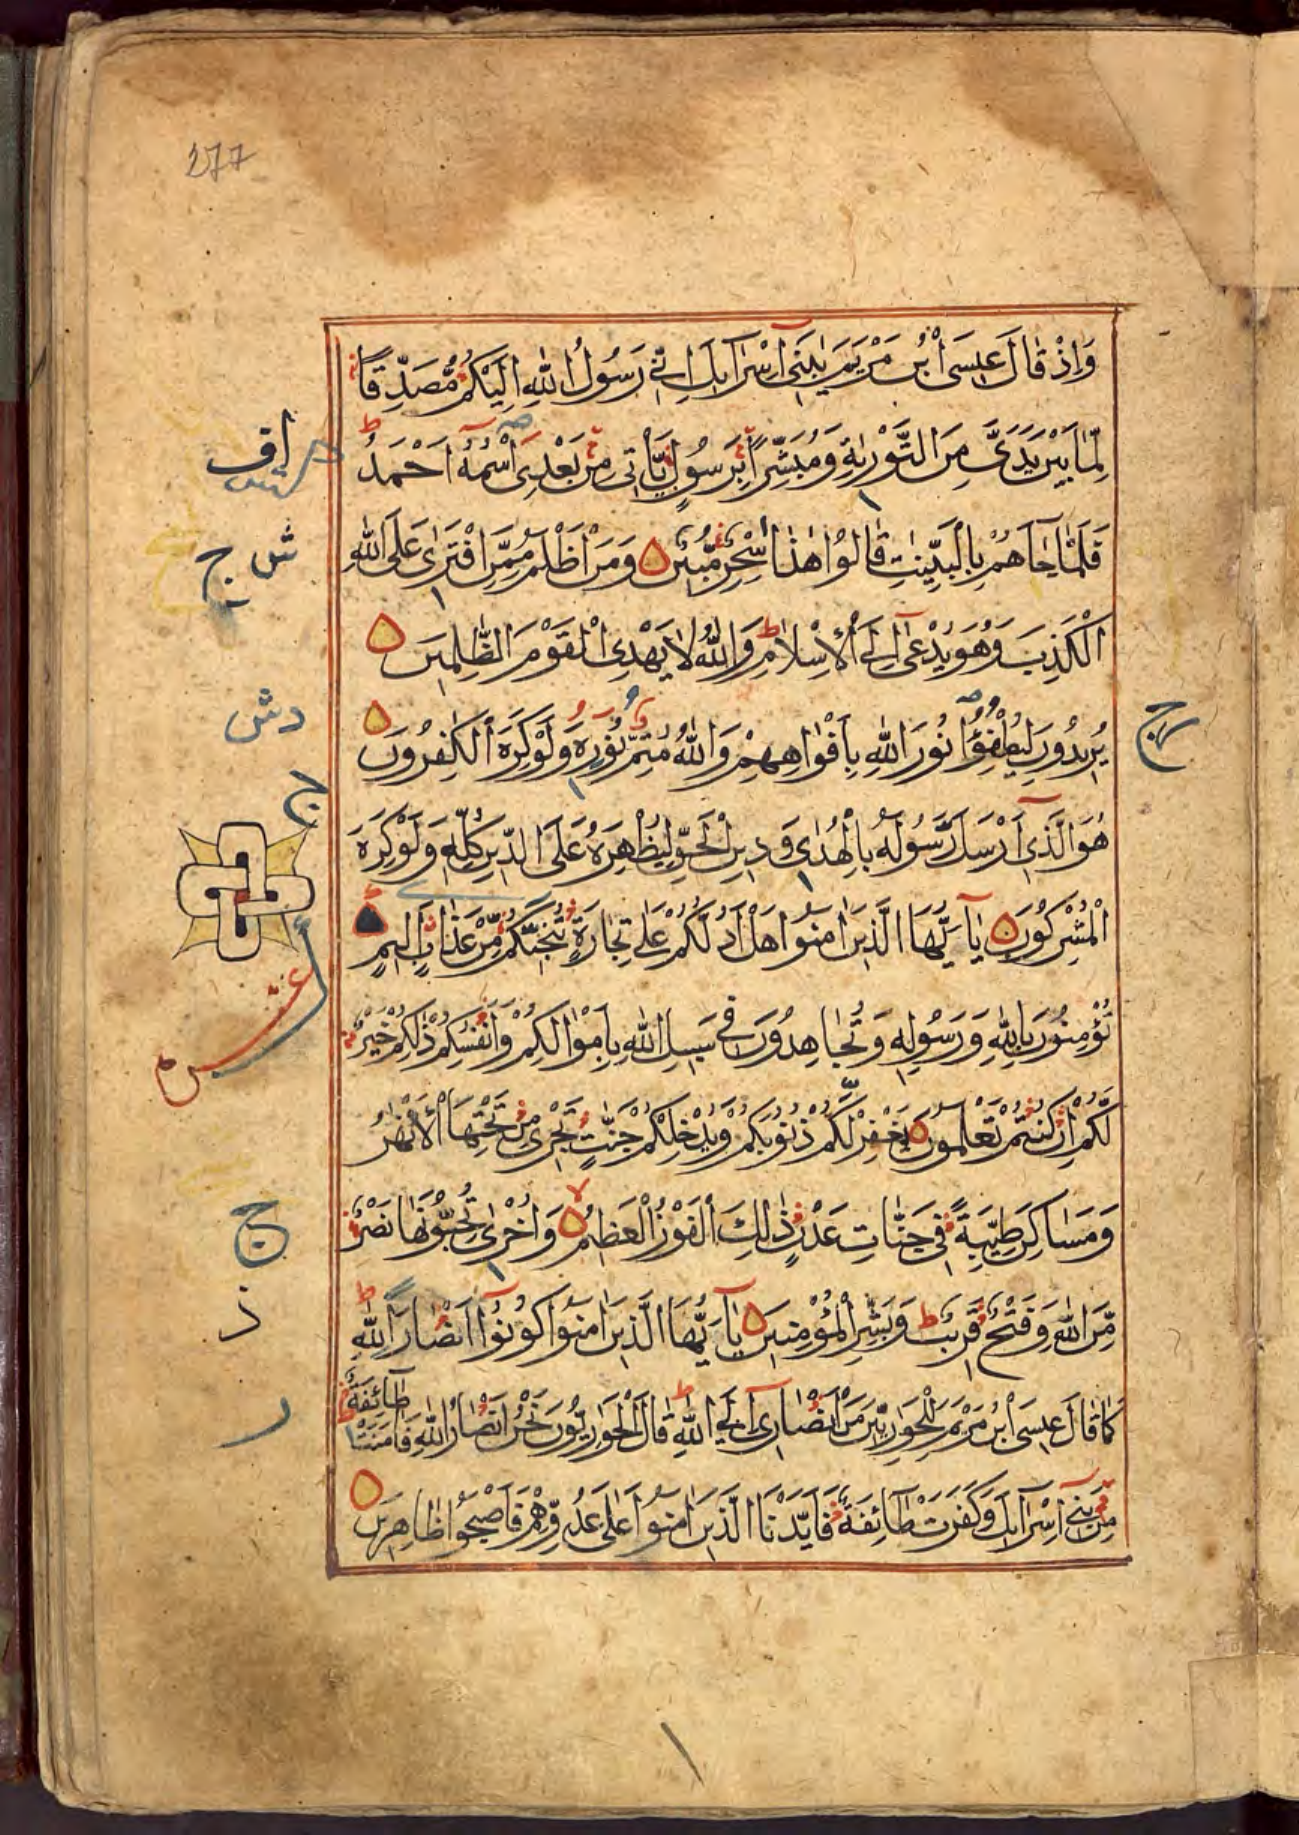 277
وَاِذْ قَالَ عِيسَى ابْنُ مَرْيَمَ يٰبَنِىٓ اِسْرَآئِلَ اِنِّى رَسُولُ اللهِ اِلَيْكُمْ مُّصَدِّقًا
لِّمَا بَيْنَ يَدَىَّ مِنَ التَّوْرٰىةِ وَمُبَشِّرًا بِرَسُولٍ يَّأْتِى مِنْ بَعْدِى اسْمُهٗٓ اَحْمَدُ ط
فَلَمَّا جَآءَهُمْ بِالْبَيِّنٰتِ قَالُوْا هٰذَا سِحْرٌ مُّبِيْنٌ وَمَنْ اَظْلَمُ مِمَّنِ افْتَرٰى عَلَى اللهِ
الْكَذِبَ وَهُوَ يُدْعٰٓى اِلَى الْاِسْلَامِ ط وَاللهُ لَا يَهْدِى الْقَوْمَ الظّٰلِمِيْنَ
يُرِيْدُوْنَ لِيُطْفِؤُا نُوْرَ اللهِ بِاَفْوَاهِهِمْ وَاللهُ مُتِمُّ نُوْرِهٖ وَلَوْ كَرِهَ الْكٰفِرُوْنَ
هُوَ الَّذِىٓ اَرْسَلَ رَسُوْلَهٗ بِالْهُدٰى وَدِيْنِ الْحَقِّ لِيُظْهِرَهٗ عَلَى الدِّيْنِ كُلِّهٖ وَلَوْ كَرِهَ
الْمُشْرِكُوْنَ يَآ اَيُّهَا الَّذِيْنَ اٰمَنُوْا هَلْ اَدُلُّكُمْ عَلٰى تِجَارَةٍ تُنْجِيْكُمْ مِّنْ عَذَابٍ اَلِيْمٍ
تُؤْمِنُوْنَ بِاللهِ وَرَسُوْلِهٖ وَتُجَاهِدُوْنَ فِى سَبِيْلِ اللهِ بِاَمْوَالِكُمْ وَاَنْفُسِكُمْ ذٰلِكُمْ خَيْرٌ
لَّكُمْ اِنْ كُنْتُمْ تَعْلَمُوْنَ يَغْفِرْ لَكُمْ ذُنُوْبَكُمْ وَيُدْخِلْكُمْ جَنّٰتٍ تَجْرِى مِنْ تَحْتِهَا الْاَنْهٰرُ
وَمَسَاكِنَ طَيِّبَةً فِى جَنَّاتِ عَدْنٍ ذٰلِكَ الْفَوْزُ الْعَظِيْمُ لا وَاُخْرٰى تُحِبُّوْنَهَا نَصْرٌ
مِّنَ اللهِ وَفَتْحٌ قَرِيْبٌ ط وَبَشِّرِ الْمُؤْمِنِيْنَ يَآ اَيُّهَا الَّذِيْنَ اٰمَنُوْا كُوْنُوْٓا اَنْصَارًا لِلّٰهِ ط
كَمَا قَالَ عِيسَى ابْنُ مَرْيَمَ لِلْحَوَارِيّٖنَ مَنْ اَنْصَارِىٓ اِلَى اللهِ ط قَالَ الْحَوَارِيُّوْنَ نَحْنُ اَنْصَارُ اللهِ فَاٰمَنَتْ طَآئِفَةٌ
مِّنْ بَنِىٓ اِسْرَآئِلَ وَكَفَرَتْ طَآئِفَةٌ فَاَيَّدْنَا الَّذِيْنَ اٰمَنُوْا عَلٰى عَدُوِّهِمْ فَاَصْبَحُوْا ظَاهِرِيْنَ
ش ج
دش
ج
ج
ذ
ر